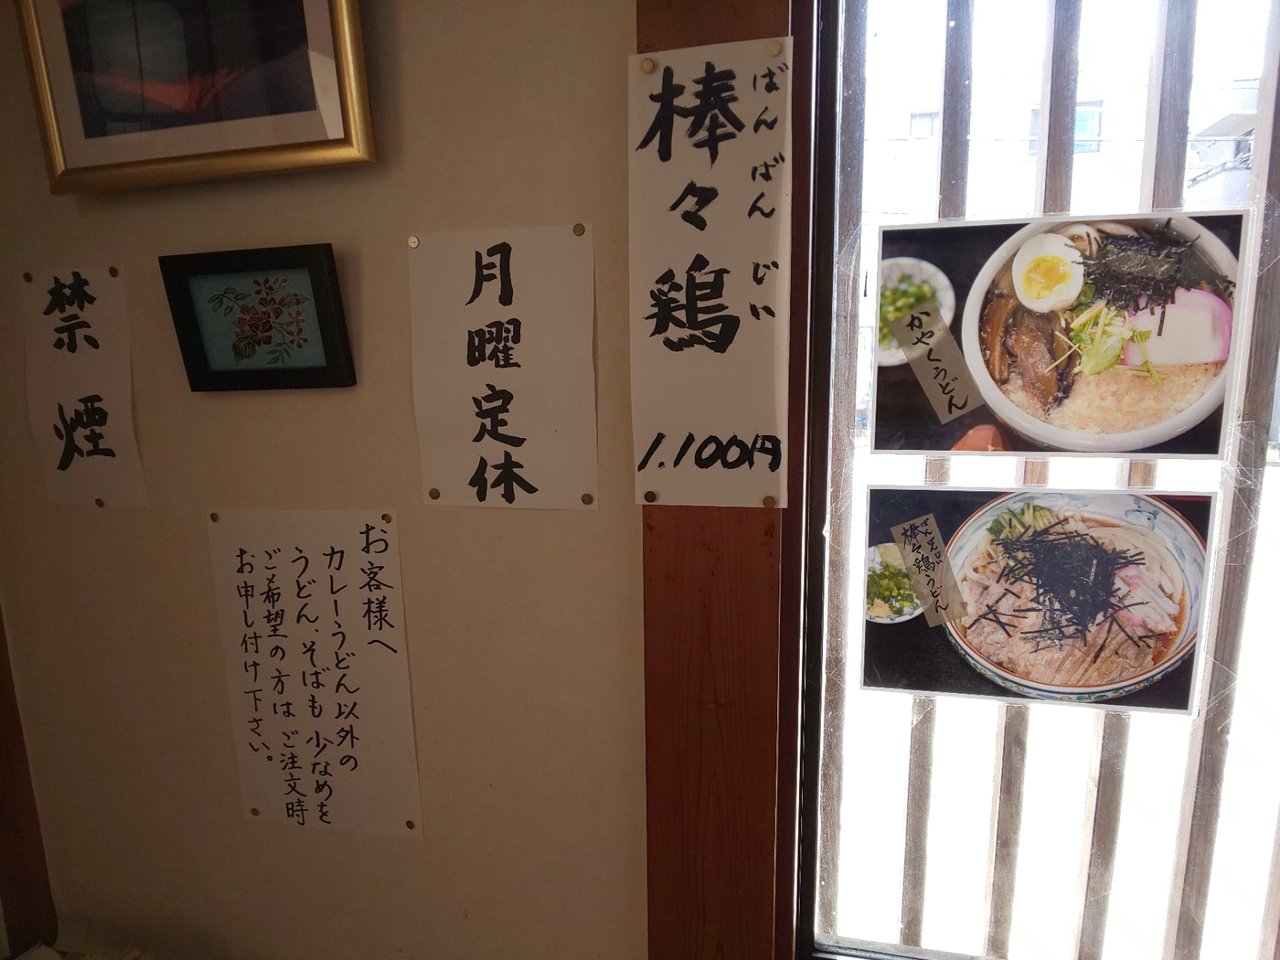 禁煙
月曜定休
棒々鶏
ばんばんじい
1.100円
お客様へ
カレーうどん以外の
うどん、そばも少なめを
ご希望の方はご注文時
お申し付け下さい。
かやくうどん
棒々鶏うどん